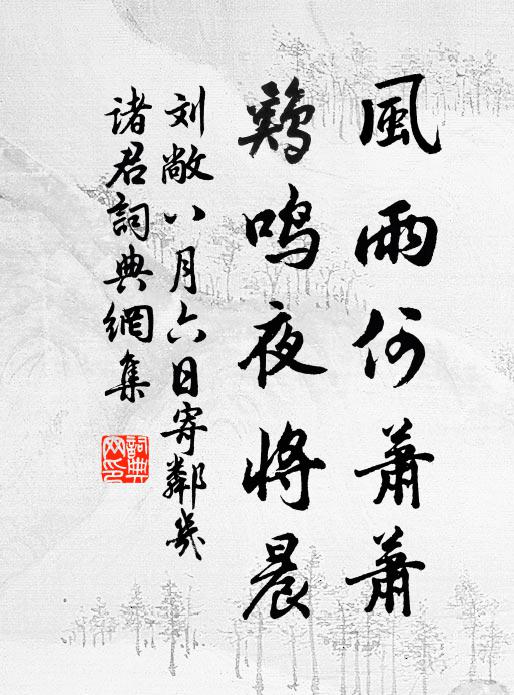 風雨何蕭蕭
鷄鳴夜將晨
刘敞八月六日寄鄰幾
诸君詞典網集
詞典網印